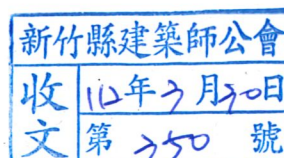 新竹縣建築師公會
收文
112年3月30日
第 350 號